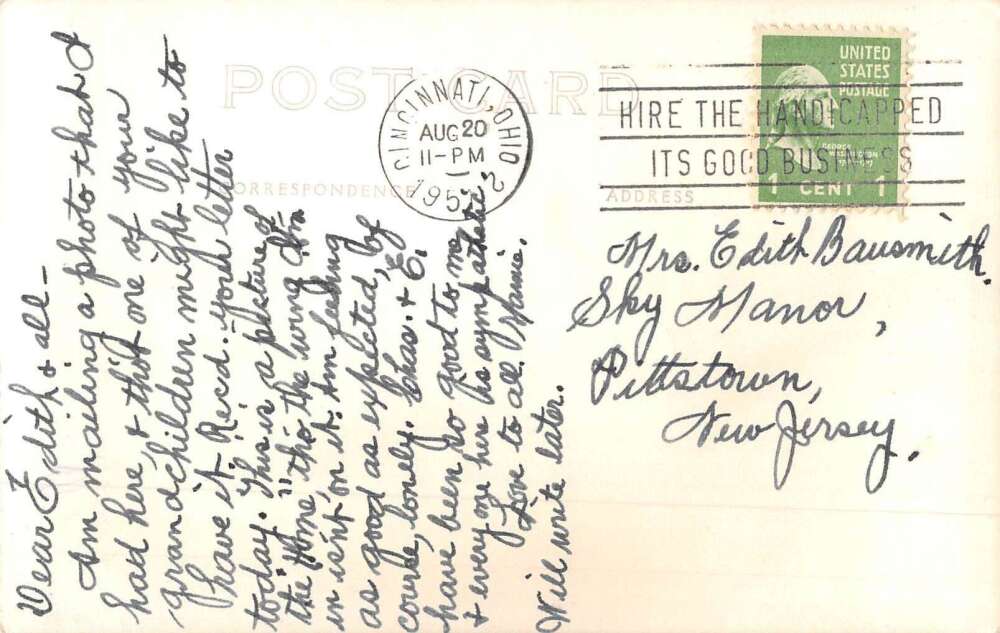 POST CARD
CORRESPONDENCE
ADDRESS
CINCINNATI, OHIO 2
AUG 20
11-PM
195
HIRE THE HANDICAPPED
ITS GOOD BUSINESS
UNITED
STATES
POSTAGE
GEORGE
WASHINGTON
1 CENT 1
Mrs. Edith Bausmith.
Sky Manor,
Pittstown,
New Jersey.
Dear Edith & all-
Am mailing a photo that I
had here, & tho't one of your
grandchildren might like to
have it. Recd. your letter
today. This is a picture of
the "Home" tho' the wing I'm
in isn't on it. Am feeling
as good as expected, by
course, lonely. Chas. & E.
have been so good to me
& every one here is sympathetic.
Love to all. Mamie.
Will write later.